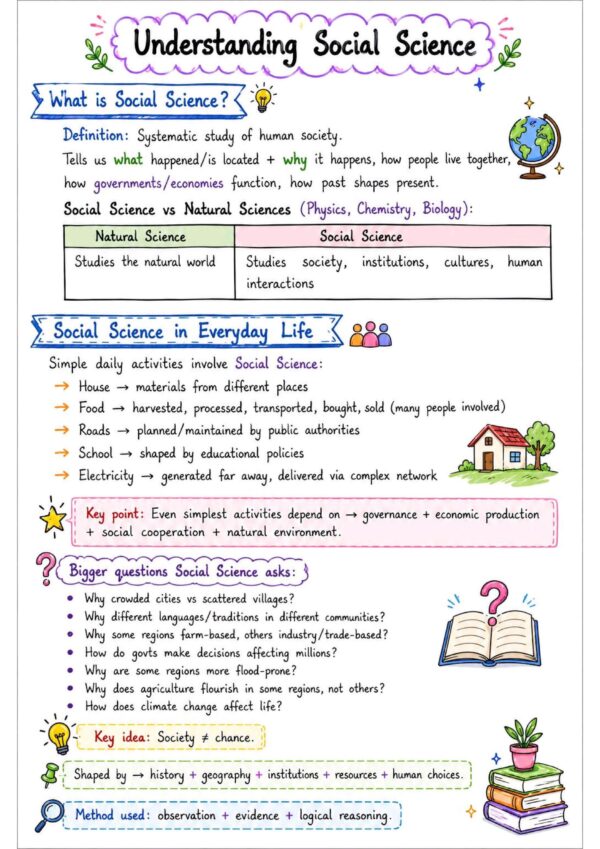 Understanding Social Science
What is Social Science?
Definition: Systematic study of human society.
Tells us what happened/is located + why it happens, how people live together,
how governments/economies function, how past shapes present.
Social Science vs Natural Sciences (Physics, Chemistry, Biology):
Natural Science
Social Science
Studies the natural world
Studies society, institutions, cultures, human
interactions
Social Science in Everyday Life
Simple daily activities involve Social Science:
→ House → materials from different places
→ Food → harvested, processed, transported, bought, sold (many people involved)
→ Roads → planned/maintained by public authorities
→ School → shaped by educational policies
→ Electricity → generated far away, delivered via complex network
Key point: Even simplest activities depend on → governance + economic production
+ social cooperation + natural environment.
? Bigger questions Social Science asks:
• Why crowded cities vs scattered villages?
• Why different languages/traditions in different communities?
• Why some regions farm-based, others industry/trade-based?
• How do govts make decisions affecting millions?
• Why are some regions more flood-prone?
• Why does agriculture flourish in some regions, not others?
• How does climate change affect life?
?
Key idea: Society ≠ chance.
Shaped by → history + geography + institutions + resources + human choices.
Method used: observation + evidence + logical reasoning.